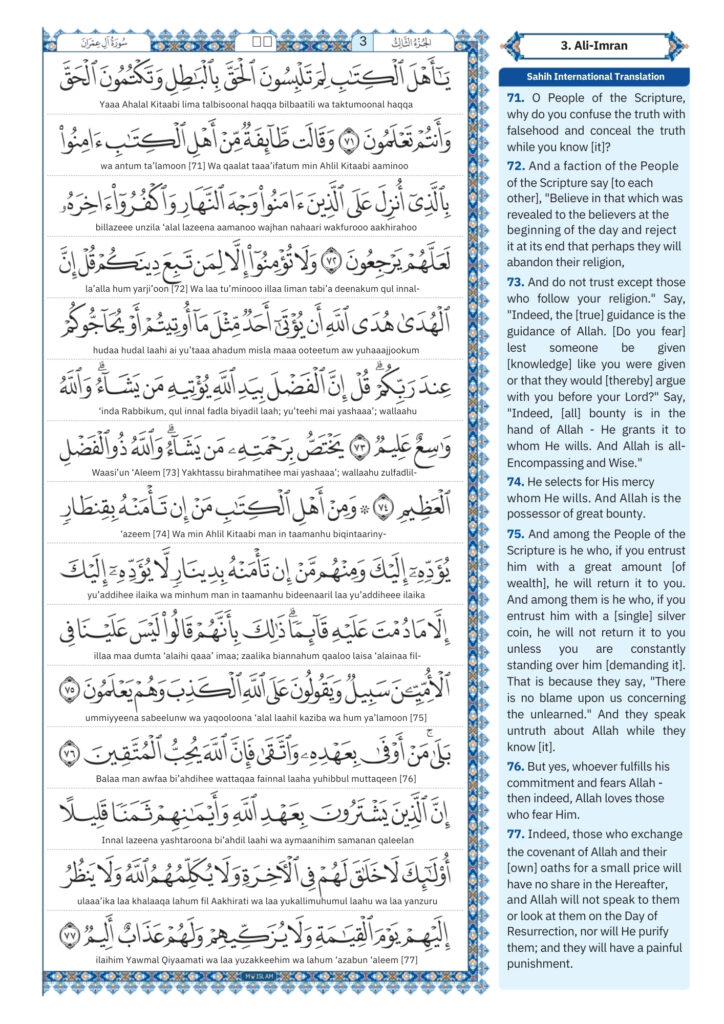 سُورَةُ آلِ عِمْرَان
3
الجُزْءُ الثَّالِثُ
يَـٰٓأَهْلَ ٱلْكِتَـٰبِ لِمَ تَلْبِسُونَ ٱلْحَقَّ بِٱلْبَـٰطِلِ وَتَكْتُمُونَ ٱلْحَقَّ
Yaaa Ahalal Kitaabi lima talbisoonal haqqa bilbaatili wa taktumoonal haqqa
وَأَنتُمْ تَعْلَمُونَ ٧١ وَقَالَت طَّآئِفَةٌ مِّنْ أَهْلِ ٱلْكِتَـٰبِ ءَامِنُوا۟
wa antum ta'lamoon [71] Wa qaalat taaa'ifatum min Ahlil Kitaabi aaminoo
بِٱلَّذِىٓ أُنزِلَ عَلَى ٱلَّذِينَ ءَامَنُوا۟ وَجْهَ ٱلنَّهَارِ وَٱكْفُرُوٓا۟ ءَاخِرَهُۥ
billazeee unzila 'alal lazeena aamanoo wajhan nahaari wakfurooo aakhirahoo
لَعَلَّهُمْ يَرْجِعُونَ ٧٢ وَلَا تُؤْمِنُوٓا۟ إِلَّا لِمَن تَبِعَ دِينَكُمْ قُلْ إِنَّ
la'alla hum yarji'oon [72] Wa laa tu'minooo illaa liman tabi'a deenakum qul innal-
ٱلْهُدَىٰ هُدَى ٱللَّهِ أَن يُؤْتَىٰٓ أَحَدٌ مِّثْلَ مَآ أُوتِيتُمْ أَوْ يُحَآجُّوكُمْ
hudaa hudal laahi ai yu'taaa ahadum misla maaa ooteetum aw yuhaaajjookum
عِندَ رَبِّكُمْ ۗ قُلْ إِنَّ ٱلْفَضْلَ بِيَدِ ٱللَّهِ يُؤْتِيهِ مَن يَشَآءُ ۗ وَٱللَّهُ
'inda Rabbikum, qul innal fadla biyadil laah; yu'teehi mai yashaaa'; wallaahu
وَٰسِعٌ عَلِيمٌ ٧٣ يَخْتَصُّ بِرَحْمَتِهِۦ مَن يَشَآءُ ۗ وَٱللَّهُ ذُو ٱلْفَضْلِ
Waasi'un 'Aleem [73] Yakhtassu birahmatihee mai yashaaa'; wallaahu zulfadlil-
ٱلْعَظِيمِ ٧٤ ۞ وَمِنْ أَهْلِ ٱلْكِتَـٰبِ مَنْ إِن تَأْمَنْهُ بِقِنطَارٍ
'azeem [74] Wa min Ahlil Kitaabi man in taamanhu biqintaariny-
يُؤَدِّهِۦٓ إِلَيْكَ وَمِنْهُم مَّنْ إِن تَأْمَنْهُ بِدِينَارٍ لَّا يُؤَدِّهِۦٓ إِلَيْكَ
yu'addihee ilaika wa minhum man in taamanhu bideenaaril laa yu'addiheee ilaika
إِلَّا مَا دُمْتَ عَلَيْهِ قَآئِمًا ۗ ذَٰلِكَ بِأَنَّهُمْ قَالُوا۟ لَيْسَ عَلَيْنَا فِى
illaa maa dumta 'alaihi qaaa' imaa; zaalika biannahum qaaloo laisa 'alainaa fil-
ٱلْأُمِّيِّـۧنَ سَبِيلٌ وَيَقُولُونَ عَلَى ٱللَّهِ ٱلْكَذِبَ وَهُمْ يَعْلَمُونَ ٧٥
ummiyyeena sabeelunw wa yaqooloona 'alal laahil kaziba wa hum ya'lamoon [75]
بَلَىٰ ۚ مَنْ أَوْفَىٰ بِعَهْدِهِۦ وَٱتَّقَىٰ فَإِنَّ ٱللَّهَ يُحِبُّ ٱلْمُتَّقِينَ ٧٦
Balaa man awfaa bi'ahdihee wattaqaa fainnal laaha yuhibbul muttaqeen [76]
إِنَّ ٱلَّذِينَ يَشْتَرُونَ بِعَهْدِ ٱللَّهِ وَأَيْمَـٰنِهِمْ ثَمَنًا قَلِيلًا
Innal lazeena yashtaroona bi'ahdil laahi wa aymaanihim samanan qaleelan
أُو۟لَـٰٓئِكَ لَا خَلَـٰقَ لَهُمْ فِى ٱلْـَٔاخِرَةِ وَلَا يُكَلِّمُهُمُ ٱللَّهُ وَلَا يَنظُرُ
ulaaa'ika laa khalaaqa lahum fil Aakhirati wa laa yukallimuhumul laahu wa laa yanzuru
إِلَيْهِمْ يَوْمَ ٱلْقِيَـٰمَةِ وَلَا يُزَكِّيهِمْ وَلَهُمْ عَذَابٌ أَلِيمٌ ٧٧
ilaihim Yawmal Qiyaamati wa laa yuzakkeehim wa lahum 'azabun 'aleem [77]
MW ISLAM
3. Ali-Imran
Sahih International Translation
71. O People of the Scripture,
why do you confuse the truth with
falsehood and conceal the truth
while you know [it]?
72. And a faction of the People
of the Scripture say [to each
other], "Believe in that which was
revealed to the believers at the
beginning of the day and reject
it at its end that perhaps they will
abandon their religion,
73. And do not trust except those
who follow your religion." Say,
"Indeed, the [true] guidance is the
guidance of Allah. [Do you fear]
lest someone be given
[knowledge] like you were given
or that they would [thereby] argue
with you before your Lord?" Say,
"Indeed, [all] bounty is in the
hand of Allah - He grants it to
whom He wills. And Allah is all-
Encompassing and Wise."
74. He selects for His mercy
whom He wills. And Allah is the
possessor of great bounty.
75. And among the People of the
Scripture is he who, if you entrust
him with a great amount [of
wealth], he will return it to you.
And among them is he who, if you
entrust him with a [single] silver
coin, he will not return it to you
unless you are constantly
standing over him [demanding it].
That is because they say, "There
is no blame upon us concerning
the unlearned." And they speak
untruth about Allah while they
know [it].
76. But yes, whoever fulfills his
commitment and fears Allah -
then indeed, Allah loves those
who fear Him.
77. Indeed, those who exchange
the covenant of Allah and their
[own] oaths for a small price will
have no share in the Hereafter,
and Allah will not speak to them
or look at them on the Day of
Resurrection, nor will He purify
them; and they will have a painful
punishment.